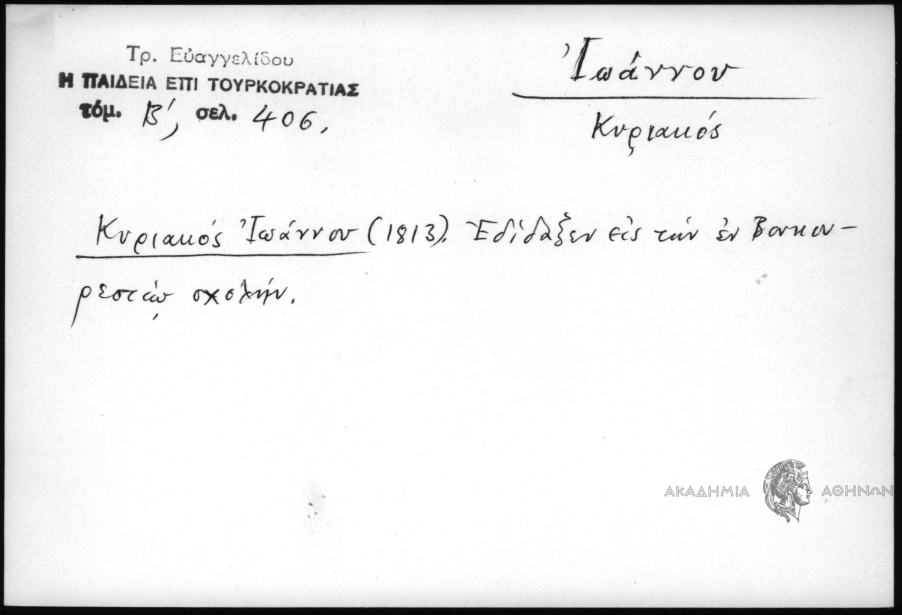 Τρ. Εὐαγγελίδου
Η ΠΑΙΔΕΙΑ ΕΠΙ ΤΟΥΡΚΟΚΡΑΤΙΑΣ
τόμ. Β', σελ. 406.
Ἰωάννου
Κυριακός
Κυριακός Ἰωάννου (1813). Ἐδίδαξεν εἰς τήν ἐν Βουκου-
ρεστίῳ σχολήν.
ΑΚΑΔΗΜΙΑ ΑΘΗΝΩΝ